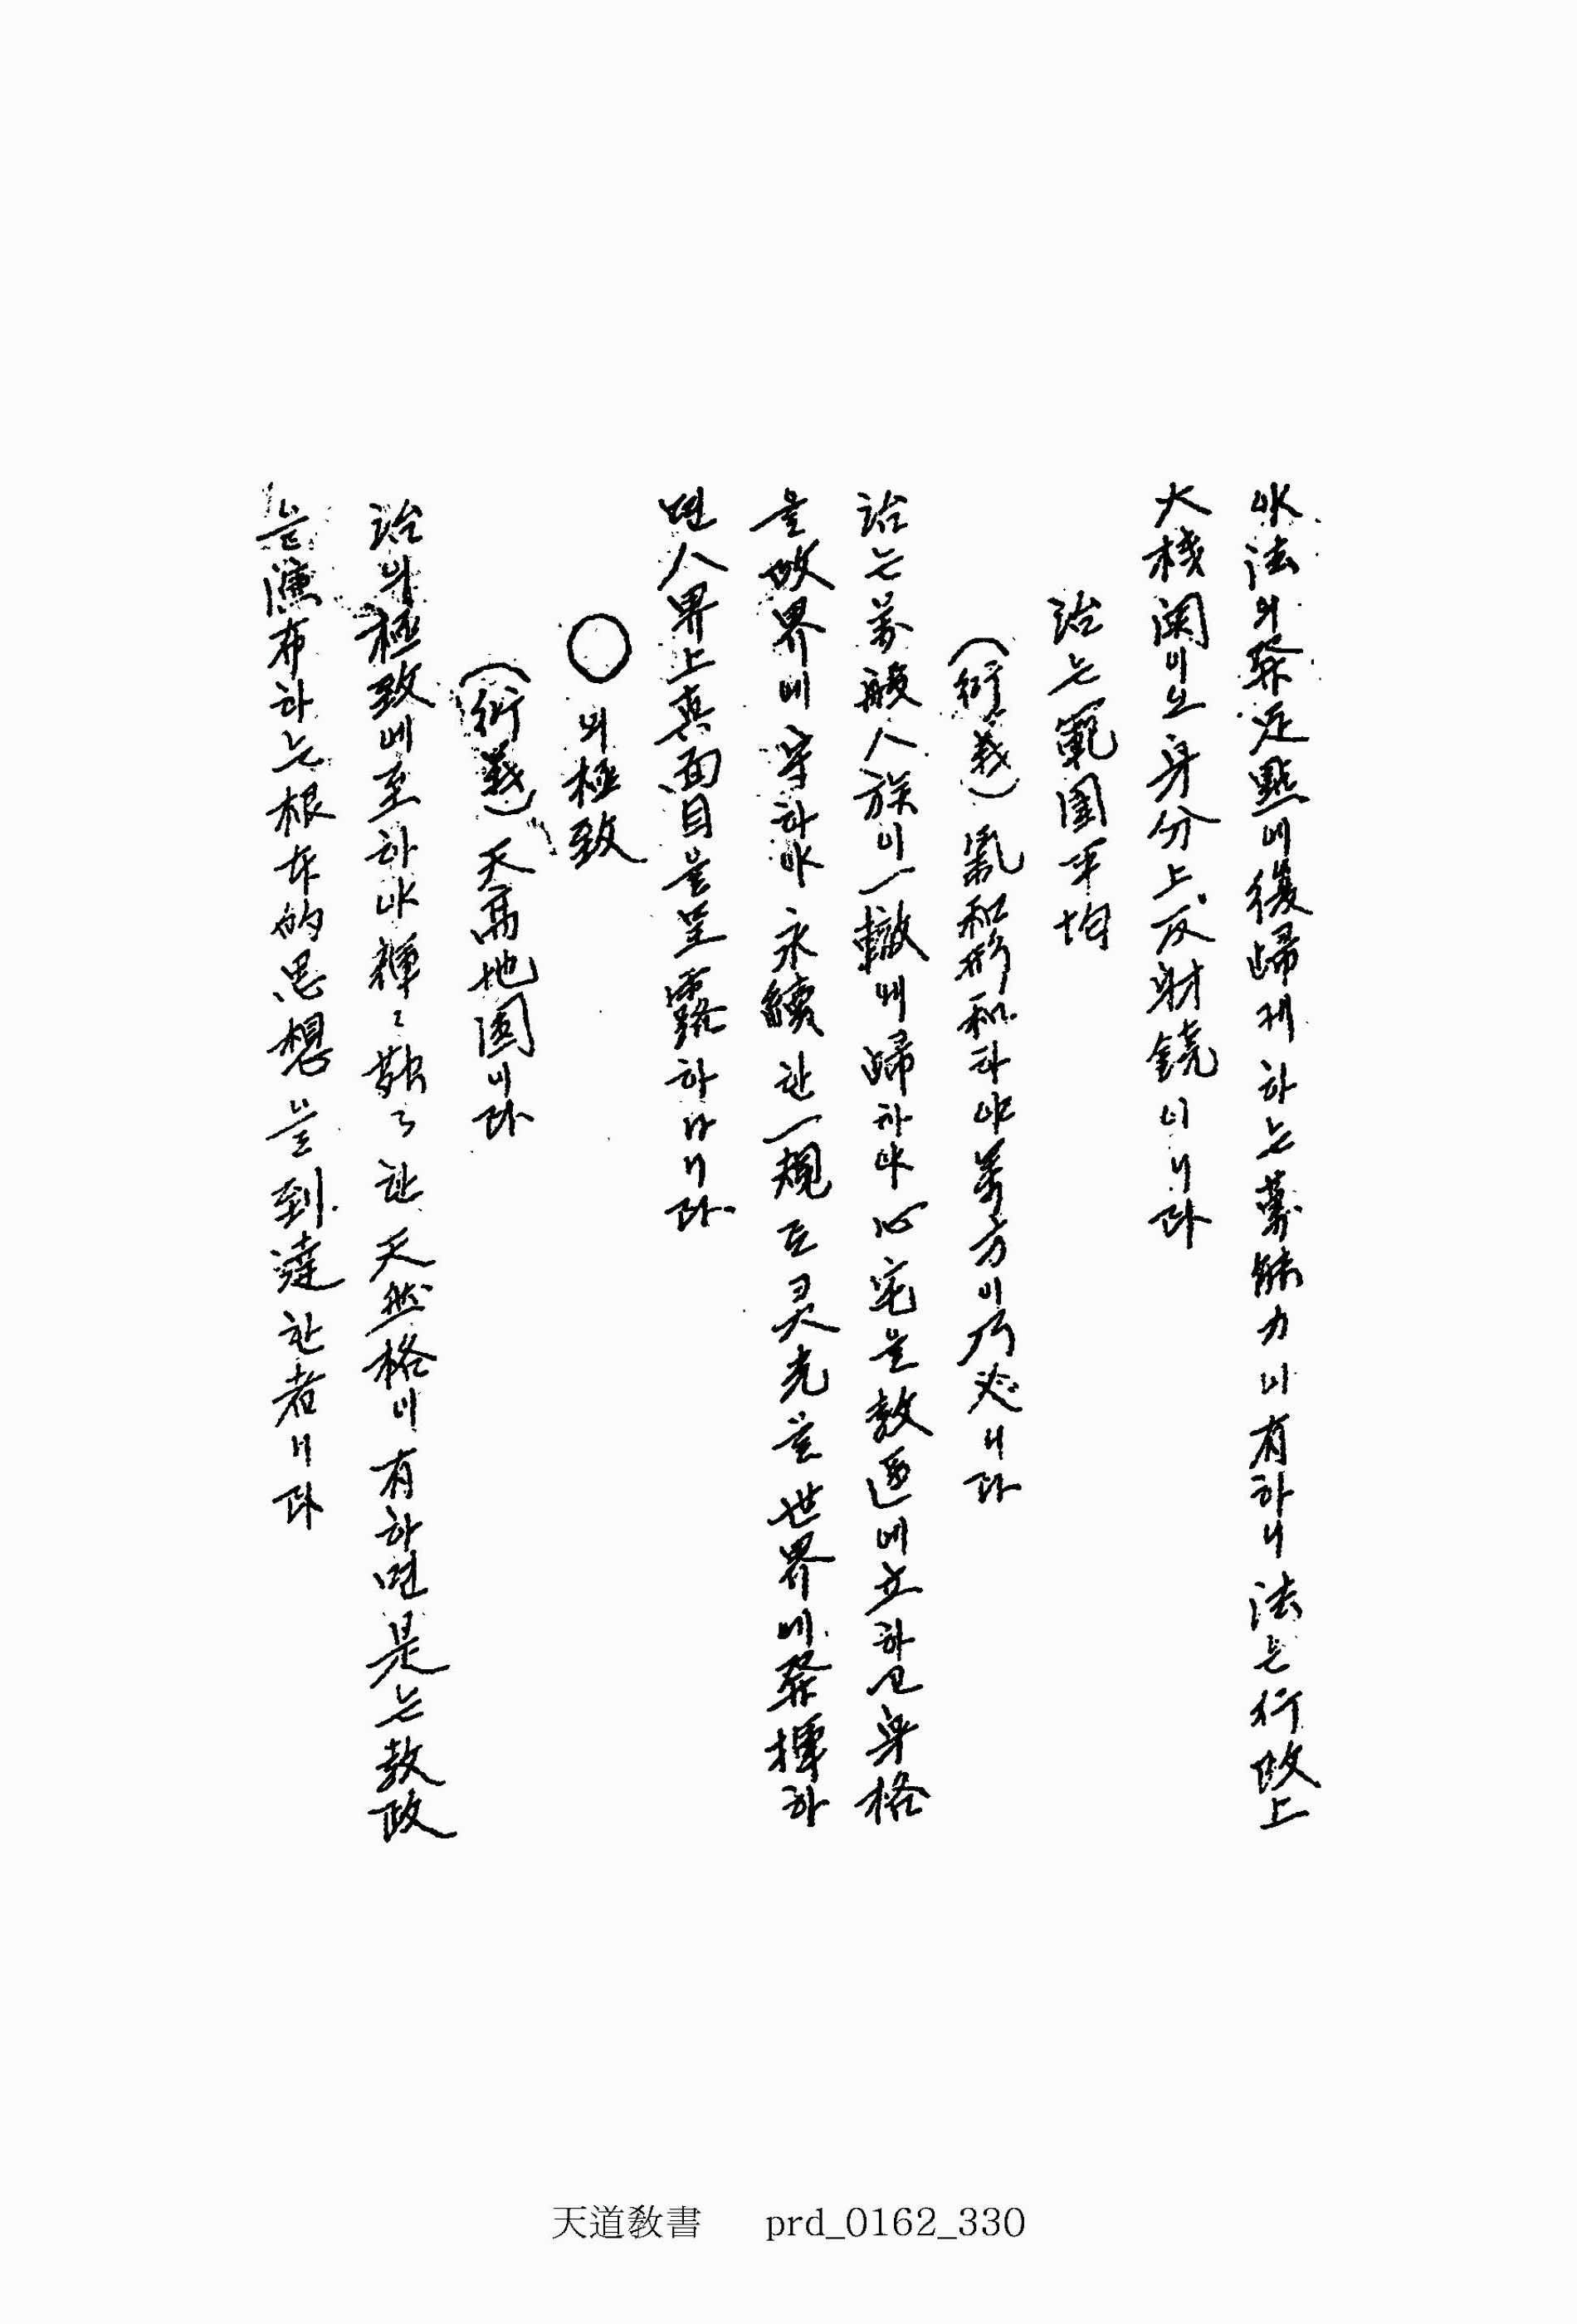 야 法의 發足點에 復歸케 하는 萬能力이 有하니 法은 行政上
大機關이오 身分上 反射鏡이니라
治는 範圍平均
(衍義) 氣和形和하야 萬方이 乃 니라
治는 萬般人族이 一轍에 歸하야 心宅을 敎區에 立하고 身格
을 政界에 守하야 永續한 一規로 灵光을 世界에 發揮하
면 人界上 眞面目을 呈露하나니라
○의 極致
(衍義) 天高地圓이라
治의 極致에 至하야 한 天然格이 有하면 是는 敎政
을 演布하는 根本的 思想을 到達한 者니라
天道敎書 prd_0162_330